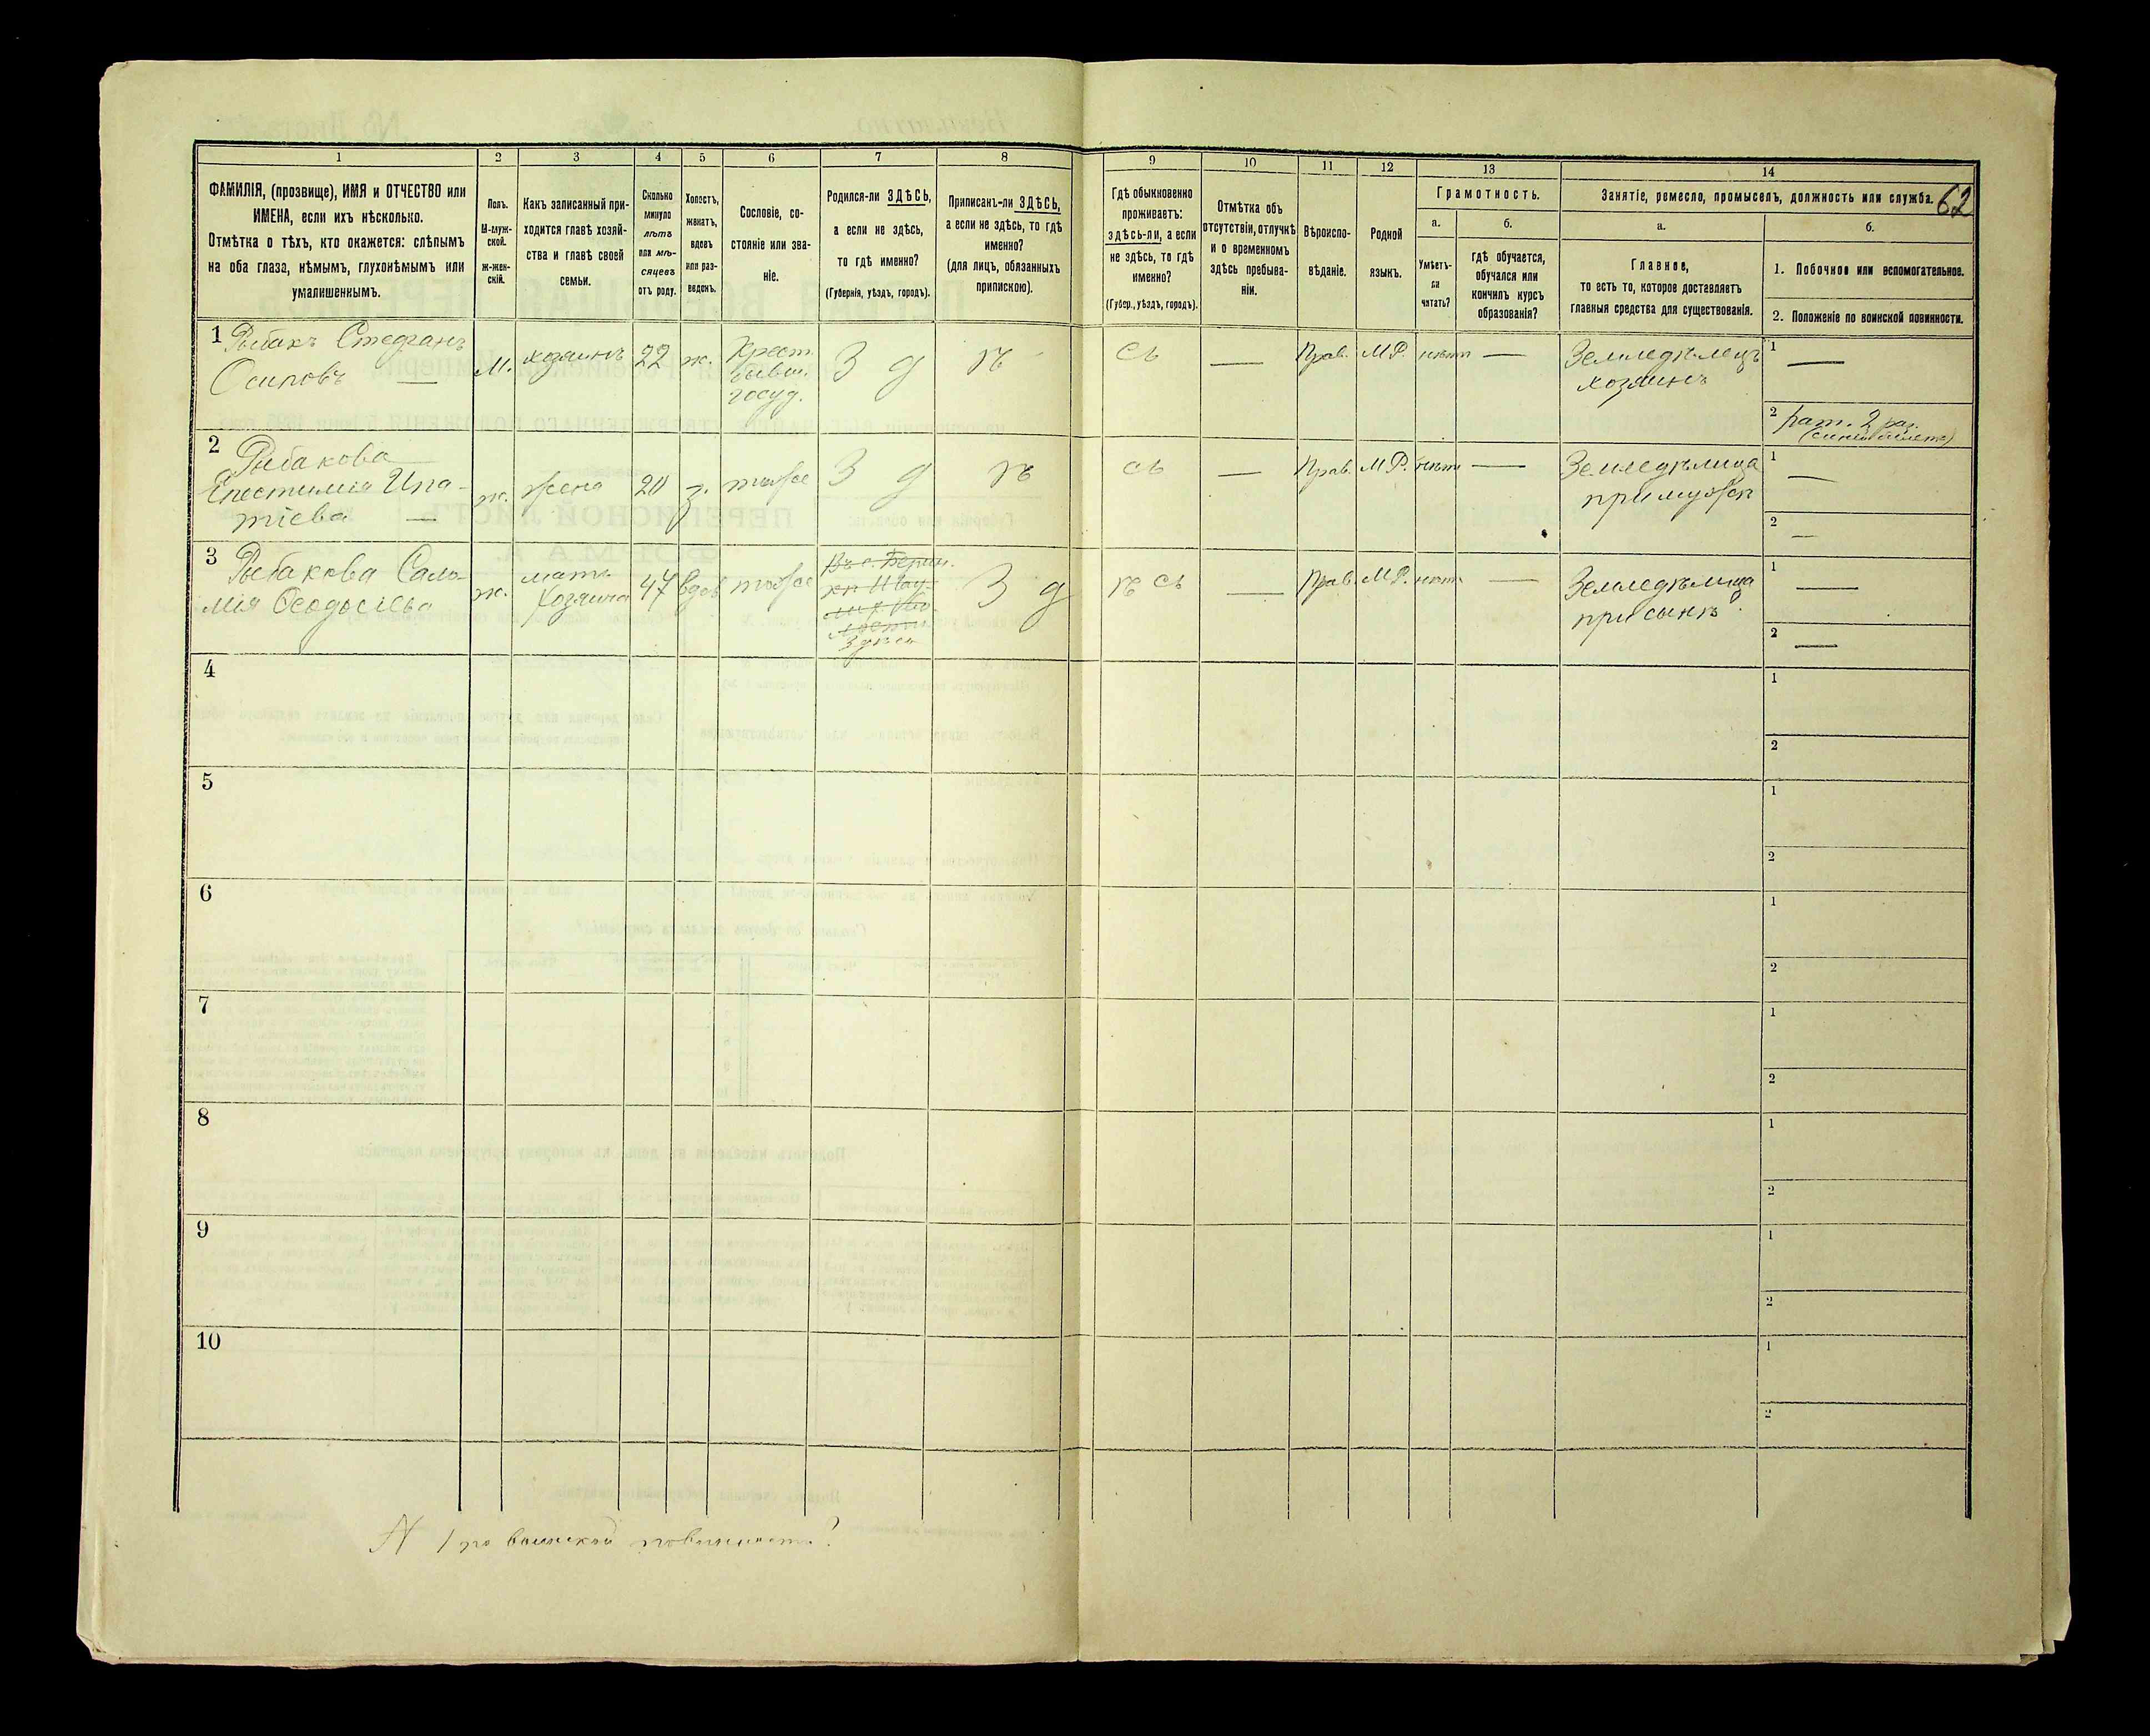 1
2
3
4
5
6
7
8
9
10
11
12
13
14
62
ФАМИЛІЯ, (прозвище), ИМЯ и ОТЧЕСТВО или
ИМЕНА, если ихъ нѣсколько.
Отмѣтка о тѣхъ, кто окажется: слѣпымъ
на оба глаза, нѣмымъ, глухонѣмымъ или
умалишеннымъ.
Полъ.
М-муж-
ской.
ж-жен-
скій.
Какъ записанный при-
ходится главѣ хозяй-
ства и главѣ своей
семьи.
Сколько
минуло
лѣтъ
или мѣ-
сяцевъ
отъ роду.
Холостъ,
женатъ,
вдовъ
или раз-
веденъ.
Сословіе, со-
стояніе или зва-
ніе.
Родился-ли ЗДѢСЬ,
а если не здѣсь,
то гдѣ именно?
(Губернія, уѣздъ, городъ).
Приписанъ-ли ЗДѢСЬ,
а если не здѣсь, то гдѣ
именно?
(для лицъ, обязанныхъ
припискою).
Гдѣ обыкновенно
проживаетъ:
здѣсь-ли, а если
не здѣсь, то гдѣ
именно?
(Губер., уѣздъ, городъ).
Отмѣтка объ
отсутствіи, отлучкѣ
и о временномъ
здѣсь пребыва-
ніи.
Вѣроиспо-
вѣданіе.
Родной
языкъ.
Грамотность.
а.
Умѣетъ-
ли
читать?
б.
гдѣ обучается,
обучался или
кончилъ курсъ
образованія?
Занятіе, ремесло, промыселъ, должность или служба.
а.
Главное,
то есть то, которое доставляетъ
главныя средства для существованія.
б.
1. Побочное или вспомогательное.
2. Положеніе по воинской повинности.
1 Рыбакъ Стефанъ
Осиповъ —
м. хозяинъ 22 ж. Крест.
бывш.
госуд.
З д ѣ сь — Прав. М.Р. нѣтъ — Земледѣлецъ
хозяинъ
1 —
2 рат. 2 раз.
(синій билетъ)
2 Рыбакова
Епестимія Ипа-
тіева —
ж. жена 20 з. тоже З д ѣ сь — Прав. М.Р. нѣтъ — Земледѣлица
при мужѣ
1 —
2 —
3 Рыбакова Сало-
мія Ѳеодосіева
ж. мать
хозяина 47 вдов. тоже
Здѣсь
З д ѣ сь — Прав. М.Р. нѣтъ — Земледѣлица
при сынѣ
1 —
2 —
4
1
2
5
1
2
6
1
2
7
1
2
8
1
2
9
1
2
10
1
2
N 1 по воинской повинности?